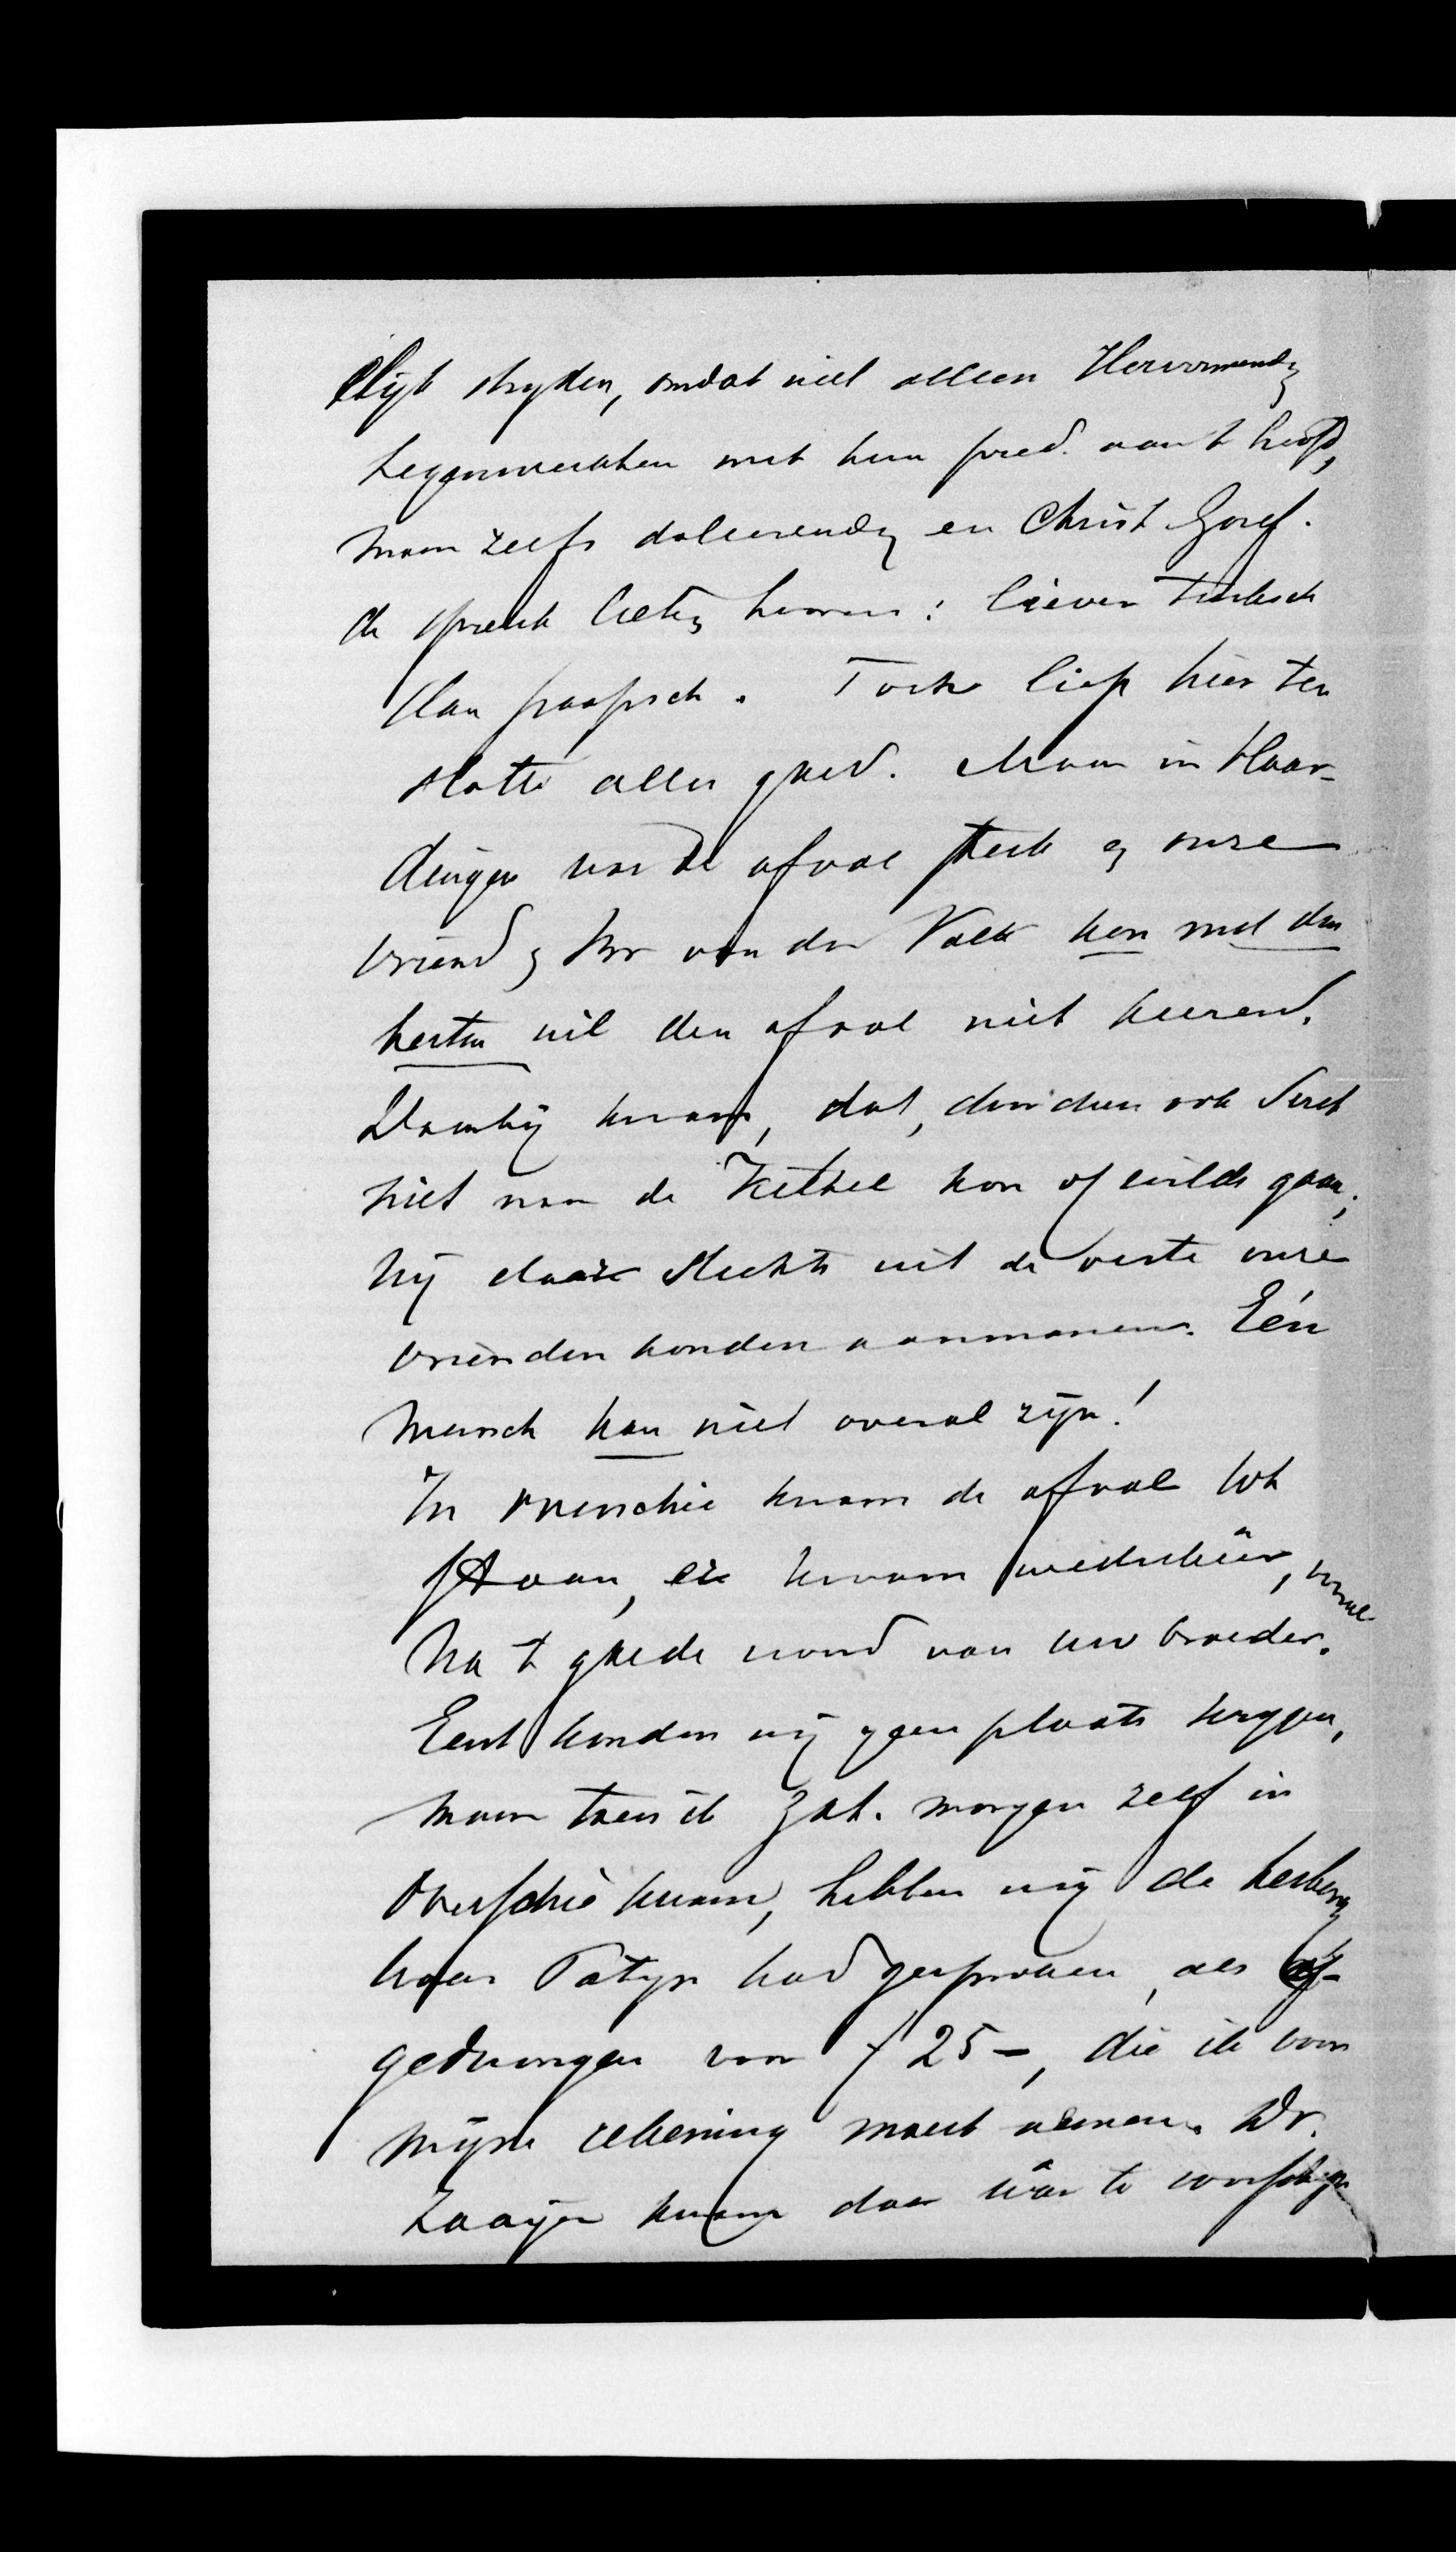 lijk strijden, omdat niet alleen Hervormden
tegenwerkten met hun pred. aan 't hoofd,
maar zelfs doleerenden en Christ. Geref.
de spreuk lieten hooren: liever Turksch
dan paapsch. Toch liep hier ten
slotte alles goed. Maar in Vlaar-
dingen werd de afval sterk en onze
vriend en Mr van der Valk kon met den
besten wil den afval niet keeren.
Daarbij kwam, dat, dien ook
niet naar de Kethel kon of wilde gaan;
wij daar slechts uit de verte onze
vrienden konden aanmanen. Eén
mensch kan niet overal zijn!
In Overschie kwam de afval tot
staan, er kwam wederkeer, vooral
na 't goede woord van uw broeder.
Eerst konden wij geen plaats krijgen,
maar toen ik Zat. morgen zelf in
Overschie kwam, hebben wij de herberg
waar Patijn had gesproken, als af-
gedwongen voor f 25 –, die ik voor
mijne rekening moest nemen. Dr.
Zaaijer kwam daar